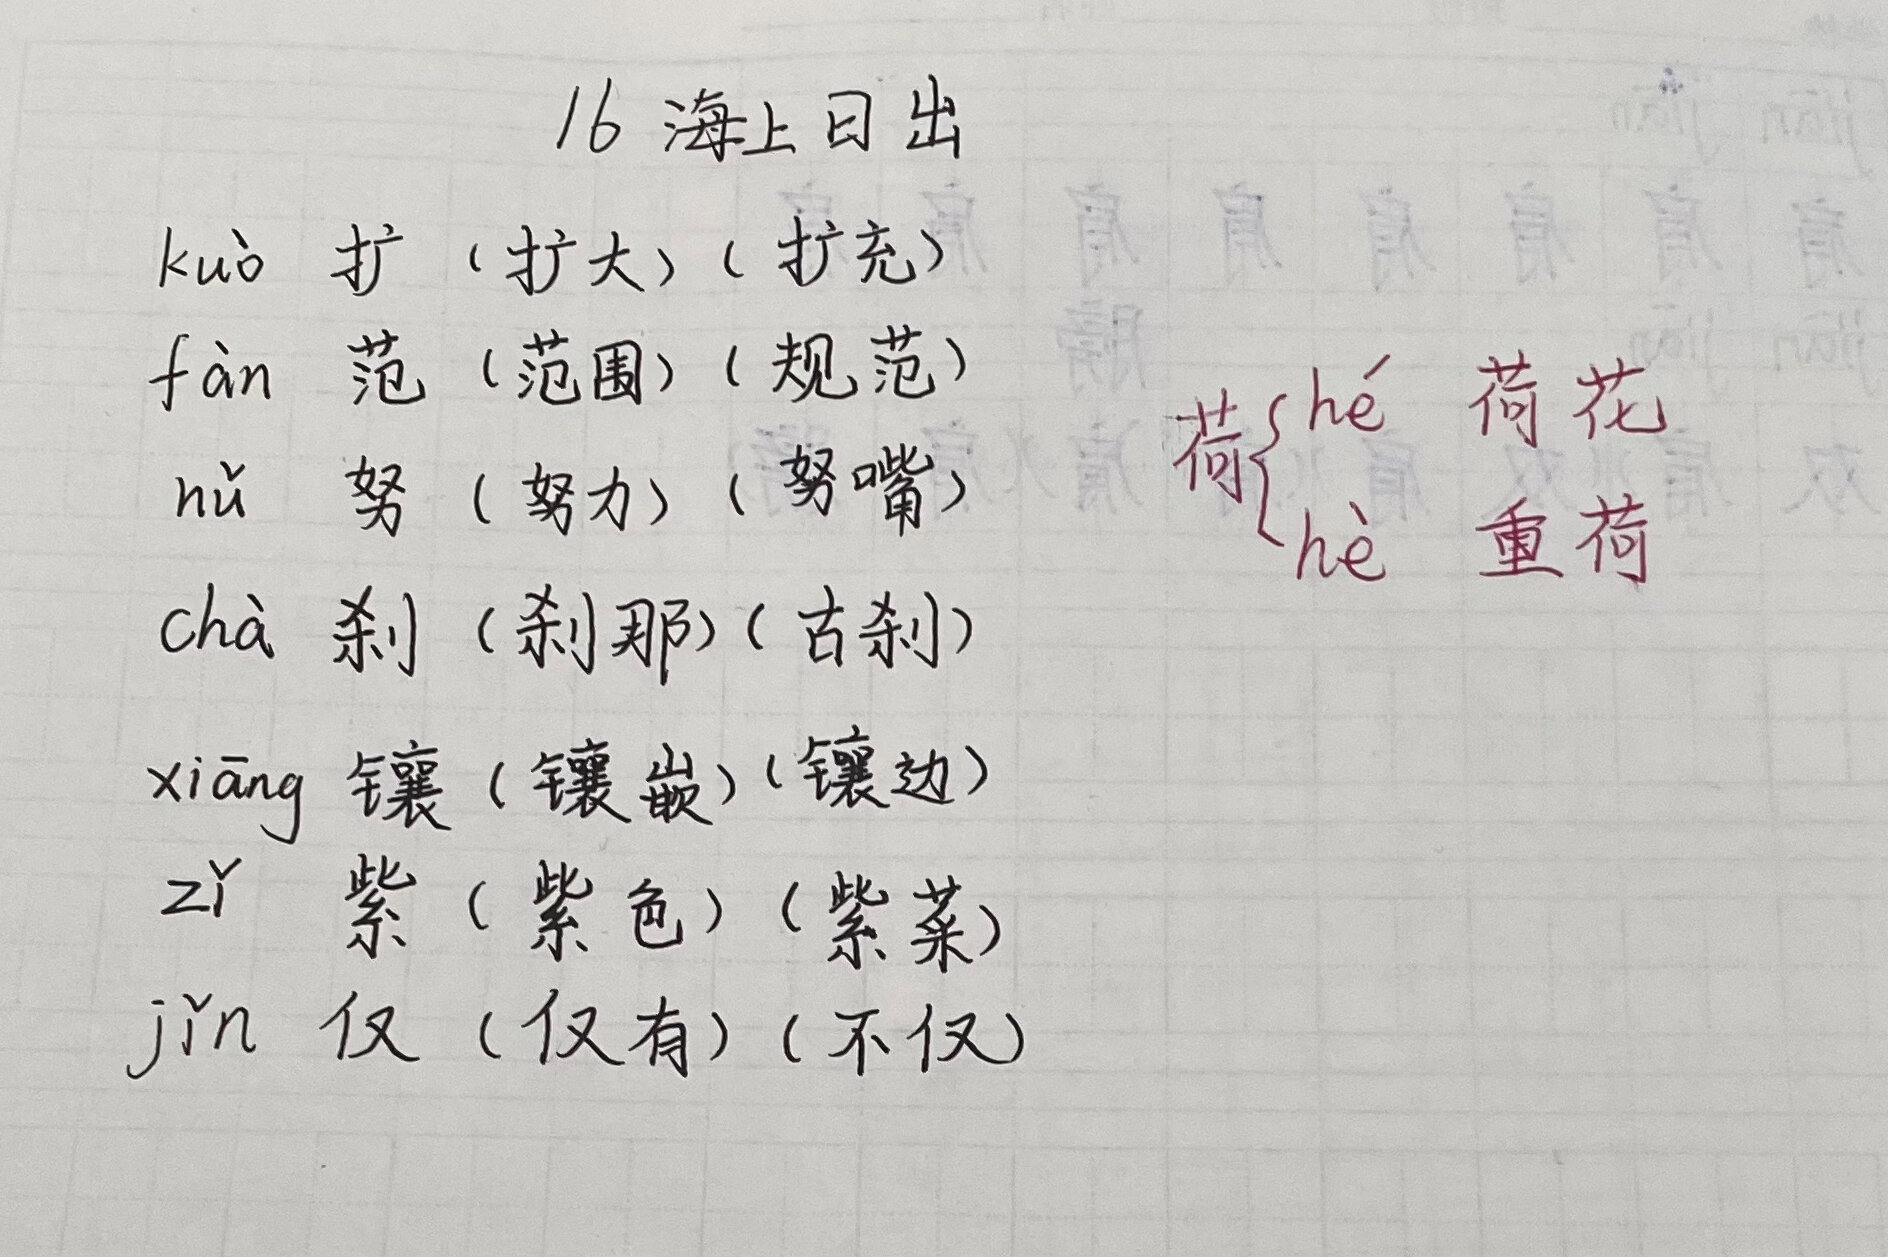 16 海上日出
kuò 扩 (扩大) (扩充)
fàn 范 (范围) (规范)
nǔ 努 (努力) (努嘴)
chà 刹 (刹那) (古刹)
xiāng 镶 (镶嵌) (镶边)
zǐ 紫 (紫色) (紫菜)
jǐn 仅 (仅有) (不仅)
荷 { hé 荷花
hè 重荷